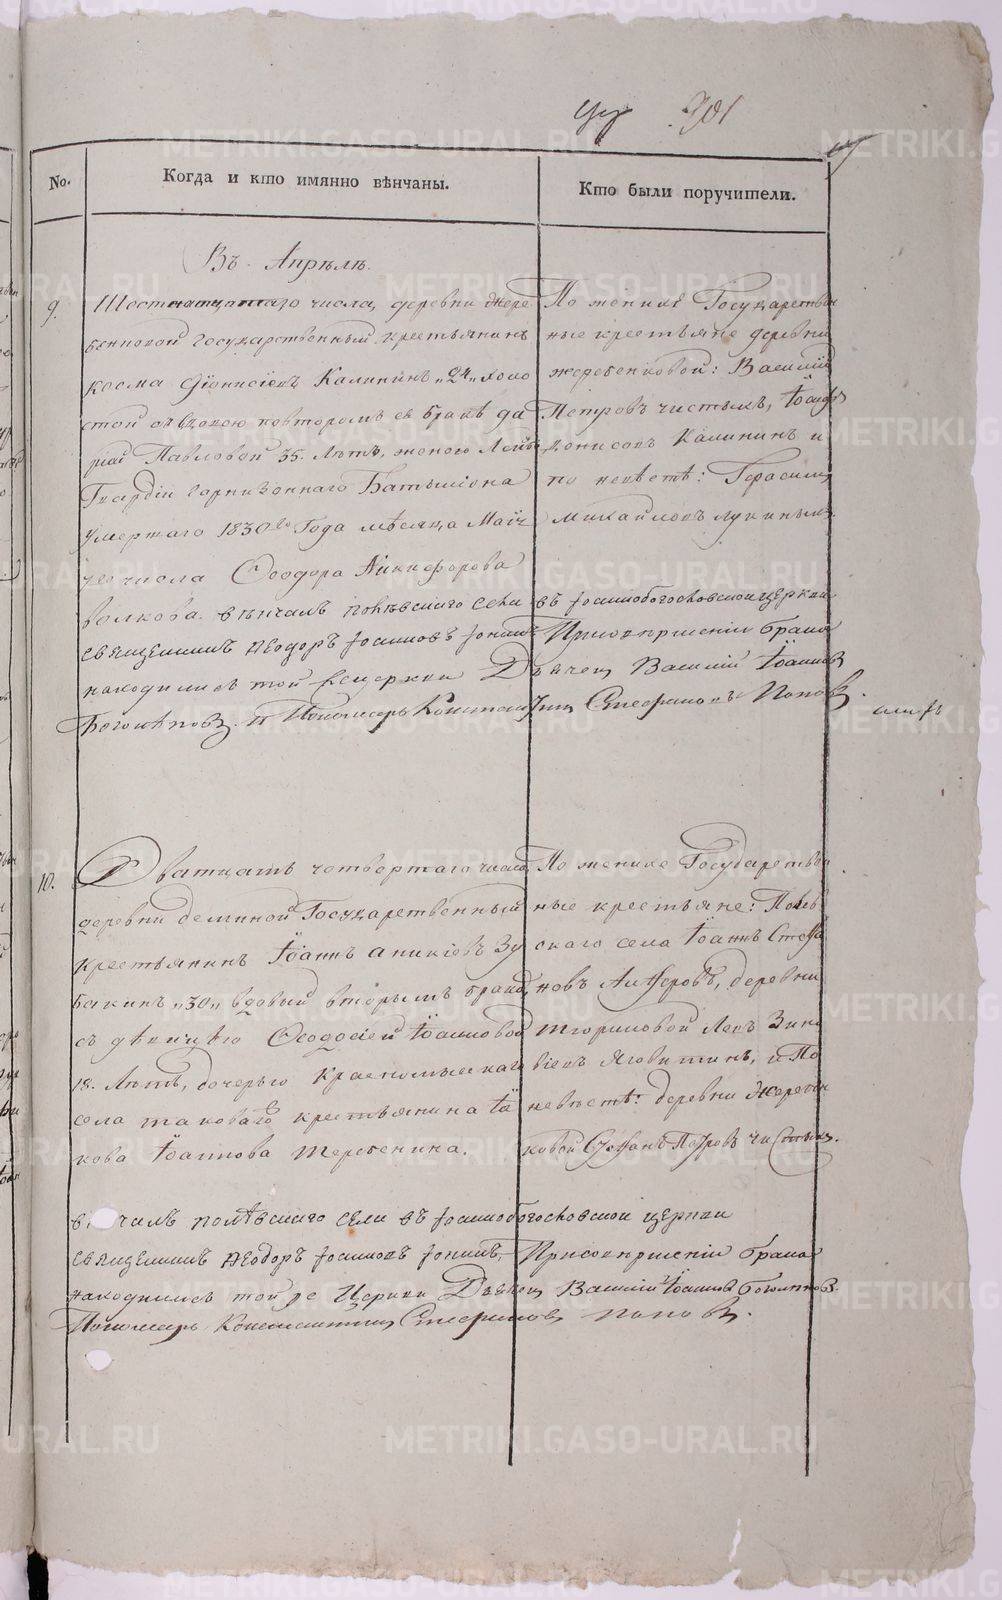 701
No.
Когда и кто имянно вѣнчаны.
Кто были поручители.
Въ Апрѣлѣ.
9.
Шестнатцатаго числа, деревни Жере
бенковой государственный крестьянинъ
Косма Діонисіевъ Калининъ „24„ холо
стой съ вдовою повторомъ ея бракѣ да
ріей Павловой 35. Лѣтъ, женою Лейбъ
Гвардіи Гарнизоннаго Баталіона
умершаго 1830го Года мѣсяца Маія
числа Ѳеодора Никифорова
Волкова. вѣнчалъ полѣвскаго села
Священникъ Ѳеодоръ Іоанновъ
находились той церкви
и Пономарь Констан
По женихѣ Государствен
ные крестьяне деревни
жеребенковой: Василій
Петровъ чистыхъ, Іоаннъ
денисовъ Калининъ и
по невѣстѣ: Герасимъ
Михайловъ лукиныхъ.
въ Іоаннобогословской церкви
Присовершеніи брака
Дьячецъ Василій Іоанновъ
тинъ Стефановъ Поповъ.
10.
Дватцать четвертаго числа,
деревни деминой Государственный
крестьянинъ Іоаннъ аникіевъ Зу
бакинъ „30„ вдовый вторымъ бракомъ,
съ дѣвицею Ѳеодосіей Іоанновой
18. Лѣтъ, дочерью Краснояскаго
села таковагоже крестьянина Іа
кова Іоаннова теребенина.
По женихе Государствен
ные крестьяне: Полѣв
скаго села Іоаннъ Стефа
новъ Алферовъ, деревни
Левъ Зино
віевъ Яговитинъ, и По
невѣстѣ: деревни Жеребен
ковой Стефанъ Петровъ Чистыхъ.
вѣнчалъ полѣвскаго села въ Іоаннобогословской церкви
Священникъ Ѳеодоръ Іоанновъ Присовершеніи брака
находились той же Церкви Дьячецъ Василій Іоанновъ
Пономарь Константинъ Стефановъ Поповъ.
METRIKI.GASO-URAL.RU